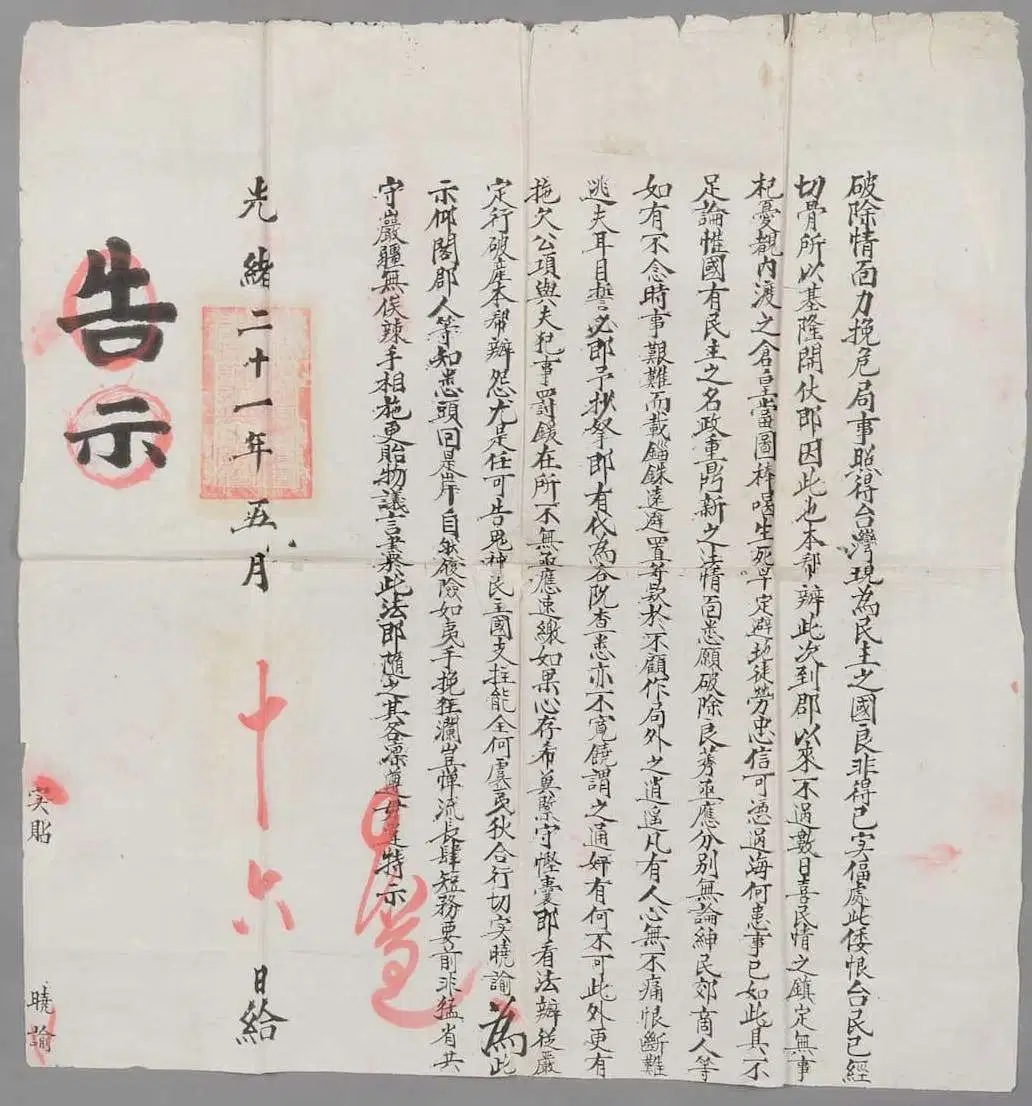 破除情面力挽危局事照得台灣現為民主之國良非得已实偪處此倭恨台民已經
切骨所以基隆開仗即因此也本帮辦此次到郡以來不過數日喜民情之鎮定無事
杞憂觀內渡之倉皇當圖棒喝生死早定避地徒勞忠信可憑過海何患事已如此具不
足論惟國有民主之名政重鼎新之法情面悉願破除良莠亟應分別無論紳民郊商人等
如有不念時事艱難而載錙銖遠避置等欵於不顧作局外之逍遥凡有人心無不痛恨斷難
逃夫耳目誓必即予抄拏即有代為容阮查悉亦不寬饒謂之通奸有何不可此外更有
拖欠公項與夫犯事罰鍰在所不無亟應速繳如果心存希兾緊守慳囊即看法辦從嚴
定行破產本帮辦怨尤是任可告鬼神民主國支拄能全何虞夷狄合行切实曉諭為此
示仰閤郡人等知悉頭回是岸自然履險如夷手挽狂瀾豈憚流長肆短務要前非猛省共
守嚴疆無俟辣手相施更貽物議言盡此法即隨之其各凛遵毋違特示
光緒二十一年五月十六日給
告示
实貼
曉諭